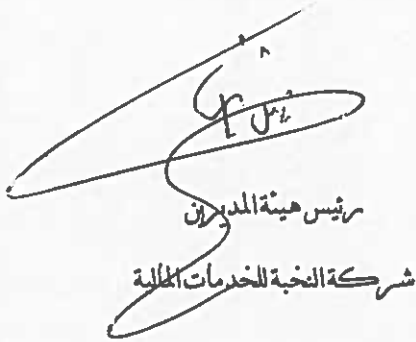 رئيس هيئة المديرين
شركة النخبة للخدمات المالية